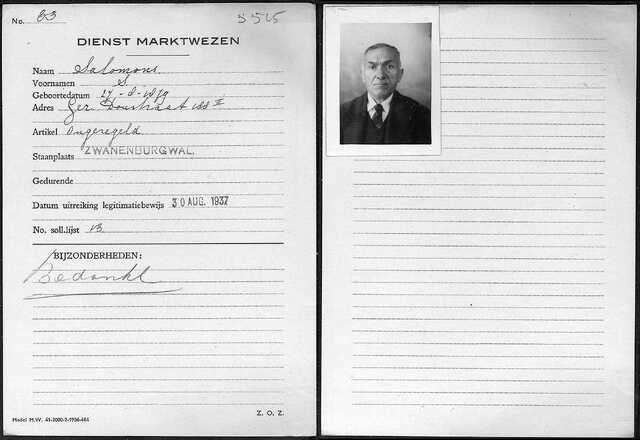 No. 83 5515
DIENST MARKTWEZEN
Naam Salomons
Voornamen S.
Geboortedatum 17-8-1879
Adres Ger. Doustraat 188 II
Artikel Ongeregeld
Staanplaats ZWANENBURGWAL.
Gedurende
Datum uitreiking legitimatiebewijs 30 AUG. 1937
No. soll.lijst
BIJZONDERHEDEN:
Bedankt
Model M.W. 41-2000-2-1936-484
Z. O. Z.